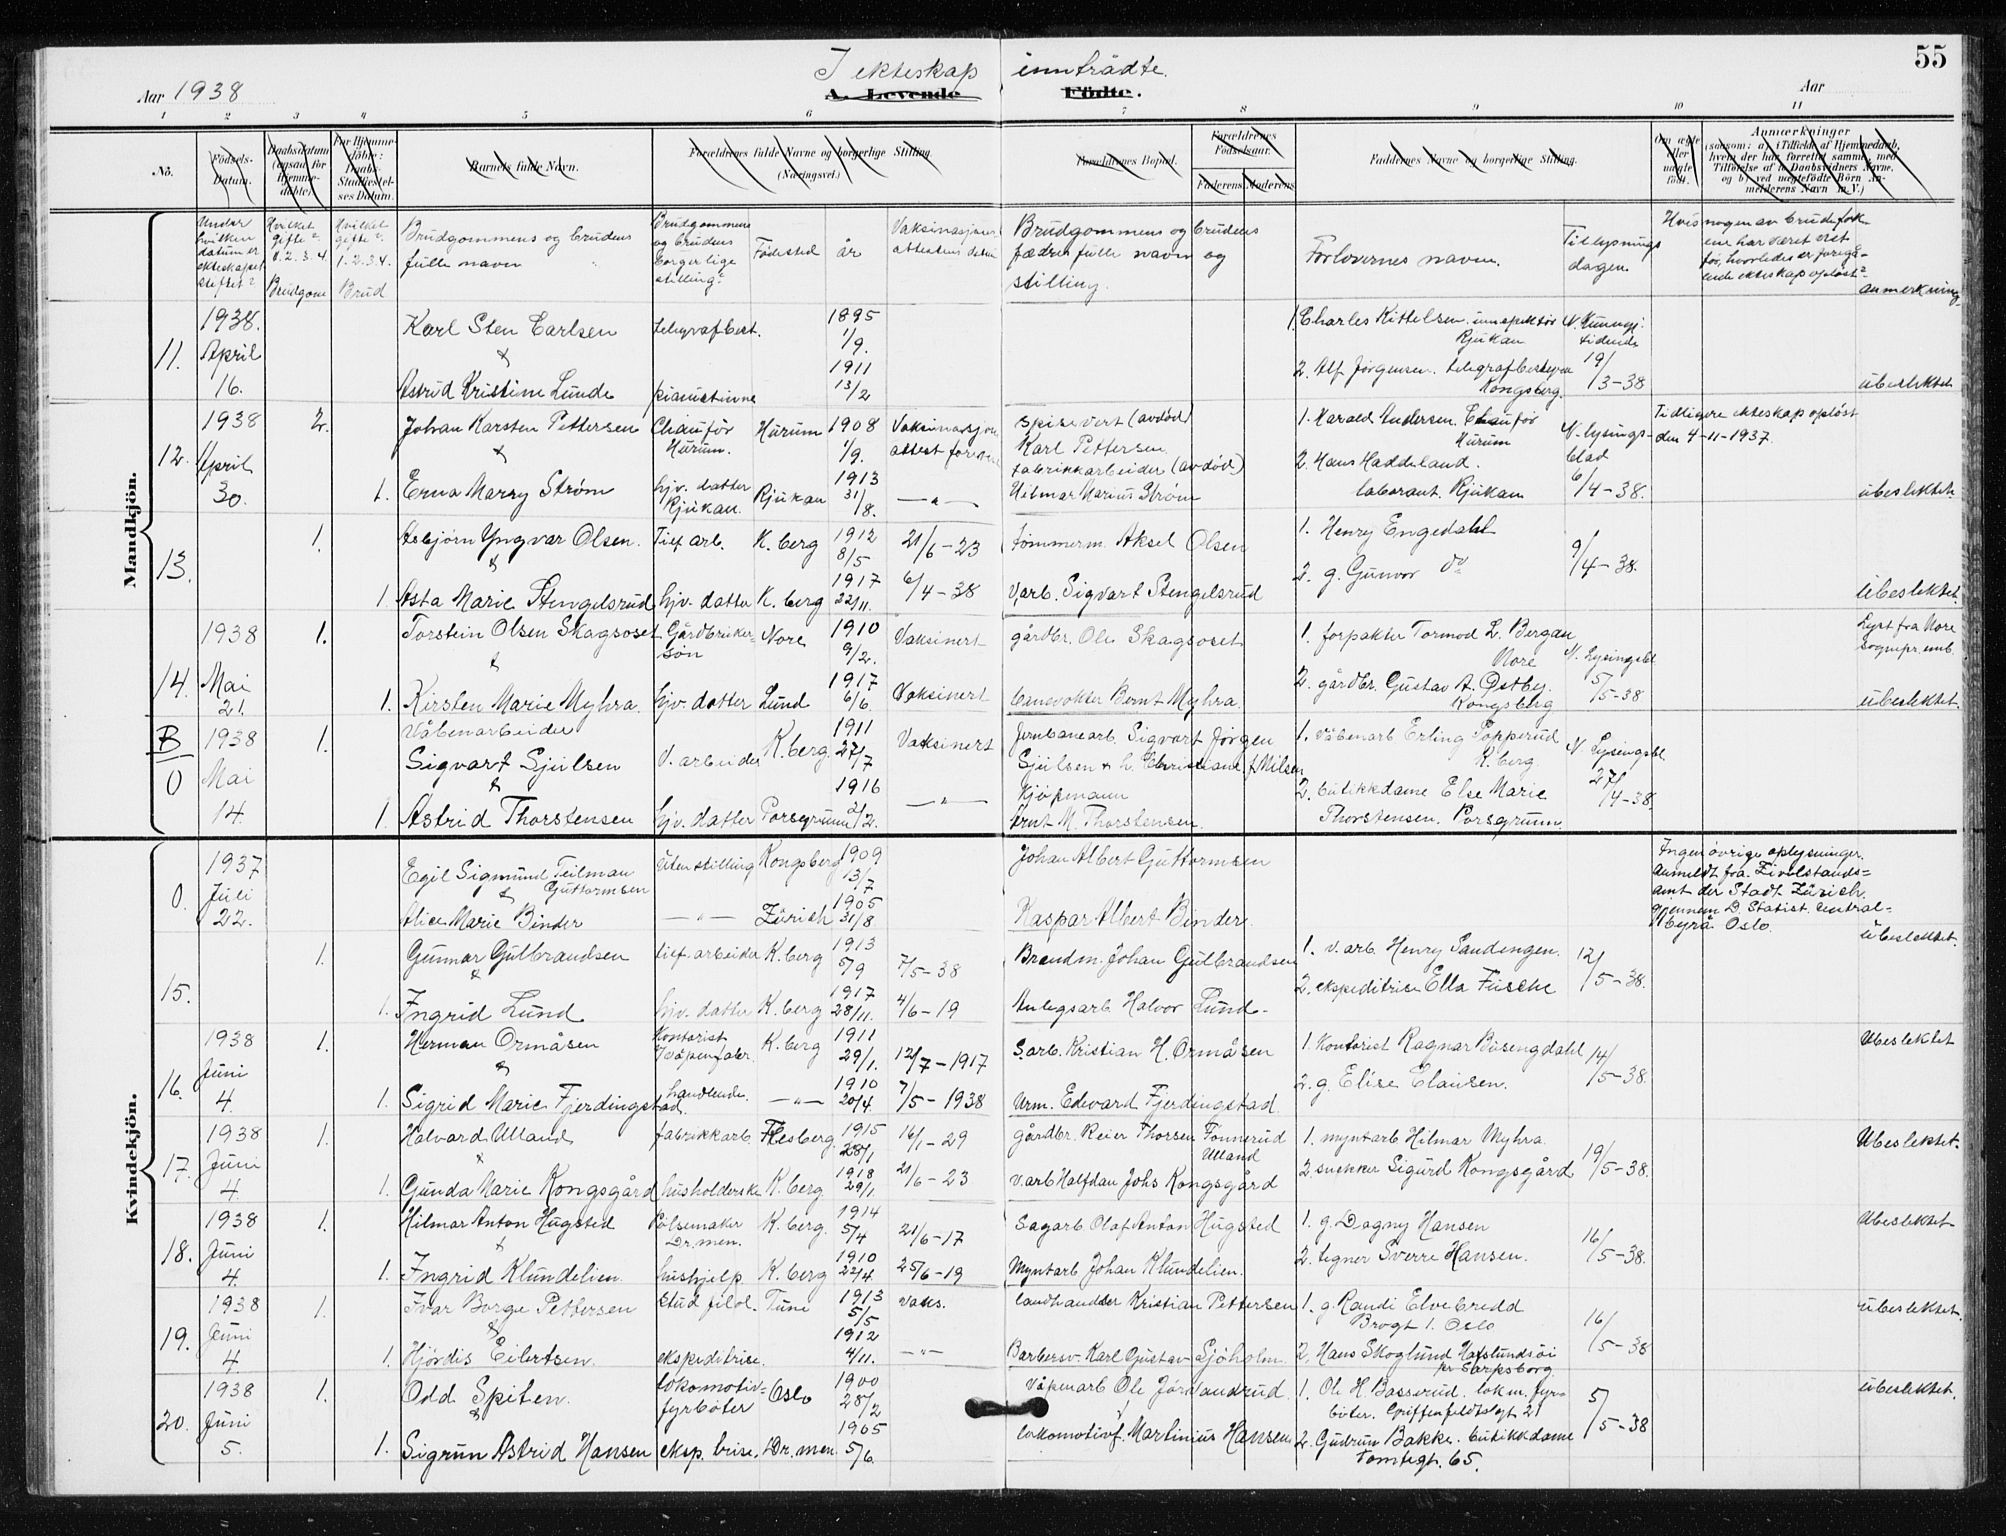 55
I ekteskap inntrådte.
Aar 1938
A. Levende Födte.
Aar
1 2 3 4 5 6 7 8 9 10 11
No.
Födsels-Datum.
Daabsdatum (ogsaa for Hjemmedöbte)
For Hjemmedöbte: Daabs-Stadfæstelses Datum.
Barnets fulde Navn.
Forældrenes fulde Navne og borgerlige Stilling. (Næringsvei.)
Forældrenes Bopæl.
Forældrenes Födselsaar.
Faderens. Moderens.
Faddernes Navne og borgerlige Stilling.
Om ægte eller uægte födt.
Anmærkninger
(saasom: a) i Tilfælde af Hjemmedaab, hvem der har forrettet samme, med Tilföielse af to Daabsvidners Navne, og b) ved uægtefödte Börn Anmelderens Navn m. V.)
Under hvilken datum er ekteskapet stiftet?
Hvilket gifte? 1. 2. 3. 4. Brudgom
Hvilket gifte? 1. 2. 3. 4. Brud
Brudgommens og brudens fulle navn
Brudgommens og brudens borgerlige stilling?
Fødested
år
Vaksinasjonsattestens datum
Brudgommens og brudens fædres fulle navn og stilling.
Forlovernes navn.
Tillysningsdagen
Hvis nogen av brudefolkene har været gift før, hvorledes er foregående ekteskap opløst?
anmerkning
Mandkjön.
11. 1938. April 16.
Karl Sten Carlsen telegrafbest. 1895 1/9.
&
Astrid Kristine Lunde pianistinne 1911 13/2
1. Charles Kittelsen. inspektør Rjukan
2. Alf Jørgensen. telegrafbestyrer Kongsberg.
19/3-38
ubeslektet
12. 1938 April 30.
2. Johan Karsten Pettersen Chauffør Hurum. Hurum 1908 1/9. Vaksinasjonsattest
&
1. Erna Marry Strøm hjv. datter Rjukan. Rjukan 1913 31/8. —"—
Spisevert (avdød) Karl Pettersen
fabrikkarbeider (avdød) Hilmar Marius Strøm
1. Harald Andersen. Chauffør Hurum
2. Hans Haddeland. laborant. Rjukan
N. lysingsblad 6/4-38.
Tidligere ekteskap opløst den 4-11-1937.
ubeslektet.
13. 1. Asbjørn Yngvar Olsen. Tief arb. K. berg 1912 8/5 21/6-23
&
1. Asta Marie Stengelsrud hjv. datter K. berg 1917 22/11. 6/4-38
tømmerm. Aksel Olsen
V.arb. Sigvart Stengelsrud
1. Henry Engedahl
2. g. Gunvor do
9/4-38.
Ubeslektet.
14. 1938 Mai 21.
1. Torstein Olsen Skagsoset Gårdbrukersøn Nore 1910 9/2. Vaksinert
&
1. Kirsten Marie Myhra. hjv. datter Lund 1917 6/6. Vaksinert
gårdbr. Ole Skagsoset
banevokter Bernt Myhra.
1. forpakter Tormod L. Bergan Nore
2. gårdbr. Gustav A. Østby. Kongsberg
N. Lysingsbl 5/5-38
Lyst fra Nore sognepr. emb.
ubeslektet.
B 0 1938 Mai 14.
1. Våbenarbeider Sigvart Sjulsen V. arbeider K. berg. 1911 27/7 Vaksinert
&
1. Astrid Thorstensen hjv. datter Porsgrunn 1916 2/2. —"—
Jernbanearb. Sigvart Jørgen Sjulsen & h. Christiane f. Nilsen
Kjøpmann Arnt M. Thorstensen.
1. våbenarb Erling Popperud K. berg.
2. butikkdame Else Marie Thorstensen. Porsgrunn.
N. Lysingsbl 27/4-38
Kvindekjön.
0. 1937 Juli 22.
Egil Sigmund Teilman Guttormsen uten stilling Kongsberg 1909 13/7
&
Alice Marie Binder —"— Zürich 1905 31/8
Johan Albert Guttormsen
Kaspar Albert Binder.
Ingen øvrige oplysninger. anmeldt fra Zivilstandsamt der Stadt Zürich gjennem D. Statist. Centralbyrå Oslo.
ubeslektet.
15. 1. Gunnar Gulbrandsen tief. arbeider K. berg 1913 5/9 7/5-38
&
1. Ingrid Lund hjv. datter K. berg 1917 28/11. 4/6-19
Brandm. Johan Gulbrandsen
Anlegsarb Halvor Lund.
1. v. arb. Henry Sandengen.
2. ekspeditrise Ella Fusche
12/5-38.
16. 1938 Juni 4.
1. Herman Ormåsen Kontorist v/våpenfabr. K. berg 1911 29/1. 12/7-1917
&
1. Sigrid Marie Fjerdingstad. handlende. —"— 1910 20/4 7/5-1938
S.arb. Kristian H. Ormåsen
Urm. Edevard Fjerdingstad
1. Kontorist Ragnar Busengdahl
2. g. Elise Clausen.
14/5-38.
Ubeslektet
17. 1938 Juni 4.
1. Halvard Ulland fabrikkarb Flesberg. 1915 28/1 16/1-29
&
1. Gunda Marie Kongsgård husholderske K. berg. 1918 29/1. 21/6-23
gårdbr. Reier Thorsen Fønnerud Ulland
v.arb Halfdan Johs Kongsgård
1. myntarb Hilmar Myhra.
2 snekker Sigurd Kongsgård
19/5-38.
Ubeslektet.
18. 1938 Juni 4.
1. Hilmar Anton Hugsted Pølsemaker Dr.men. K. berg. 1914 5/4 21/6-17
&
1. Ingrid Klundelien. hushjelp. K. berg 1910 22/4. 25/6-19
Sagarb Olaf Anton Hugsted
Myntarb Johan Klundelien.
1. g. Dagny Hansen
2. tegner Sverre Hansen.
16/5-38.
Ubeslektet
19. 1938 Juni 4.
1. Ivar Borge Pettersen Stud filol. Tune 1913 5/5 vaks.
&
1. Hjørdis Eilertsen. ekspeditrise. 1912 4/11. —"—
landhandler Kristian Pettersen
Barbersv. Karl Gustav Sjöholm.
1. g. Randi Elvebredd Brogt 1. Oslo
2. Hans Skoglund Hafslundsøi pr Sarpsborg.
16/5-38
ubeslektet.
20. 1938 Juni 5.
1. Odd Spiten. lokomotivfyrbøter Oslo 1900 28/2
&
1. Sigrun Astrid Hansen eksp. trise. Dr.men. 1905 5/6
Våpenarb Ole Jørandrud.
lokomotivf. Martinius Hansen
1. Ole H. Basserud. lokm. fyrbøter. Griffenfeldtsgt 21
2. Gudrun Bakke. butikkdame Tomtegt. 65.
5/5-38
ubeslektet.